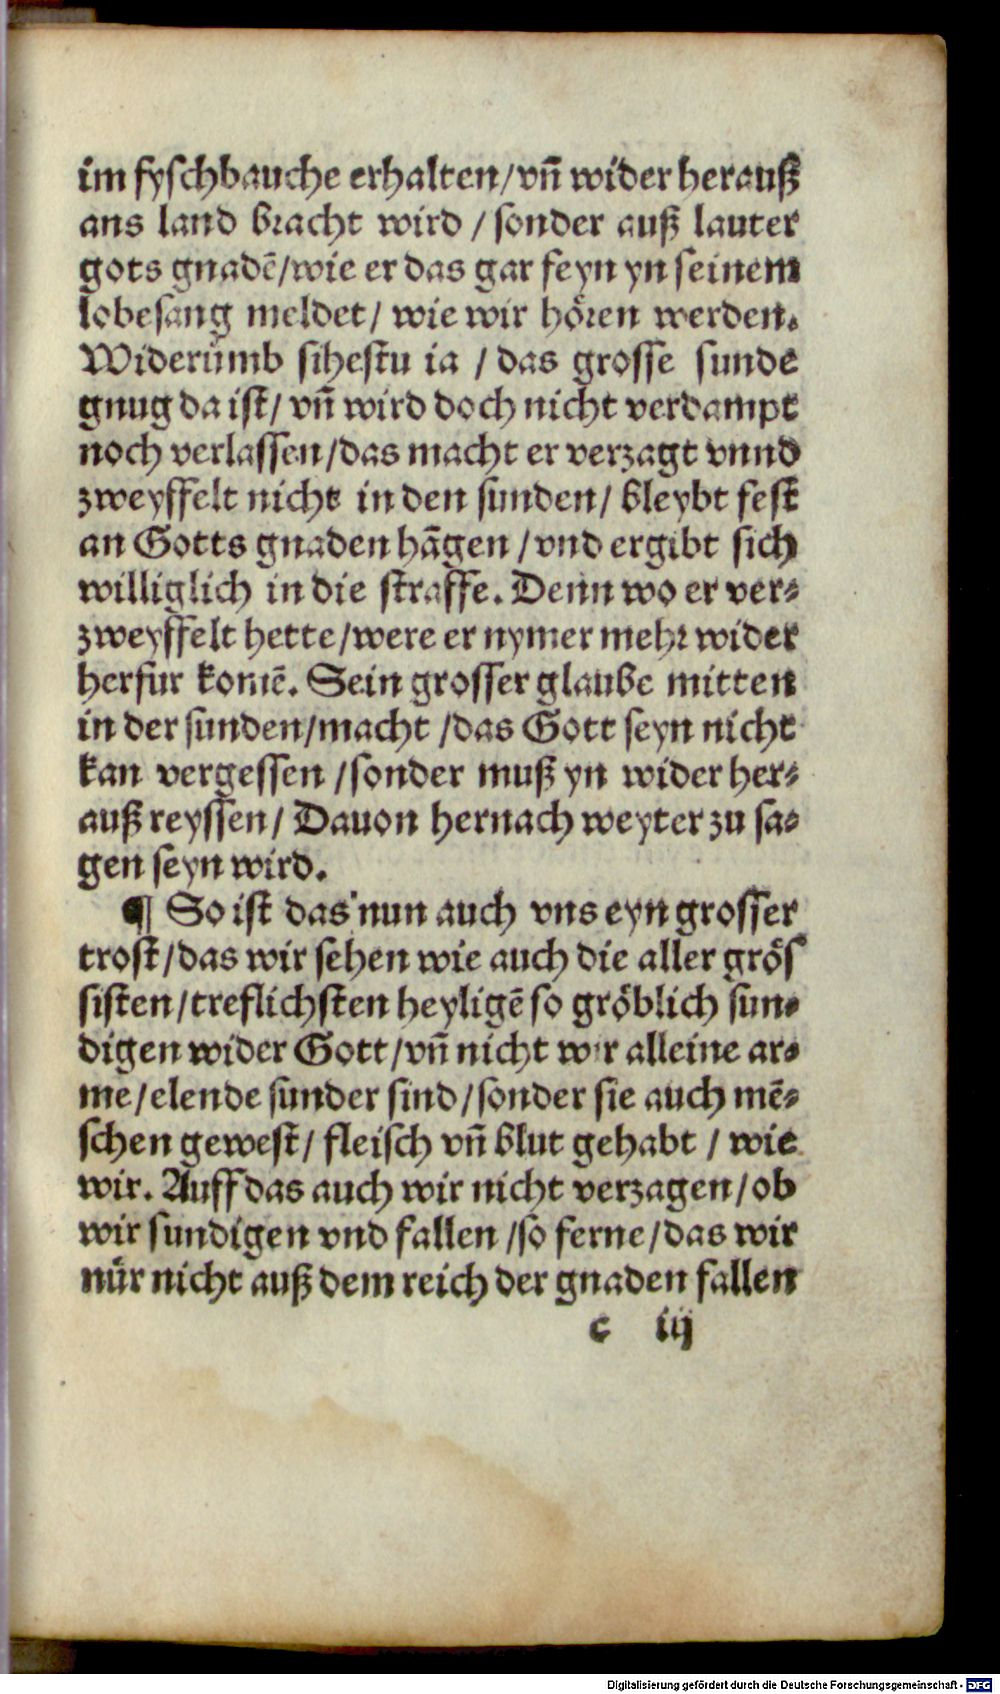 im fyschbauche erhalten/vñ wider herauß
ans land bracht wird / sonder auß lauter
gots gnadē/wie er das gar feyn yn seinem
lobesang meldet/ wie wir hören werden.
Widerümb sihestu ia / das grosse sunde
gnug da ist/ vñ wird doch nicht verdampt
noch verlassen/das macht er verzagt vnnd
zweyffelt nicht in den sunden/ bleybt fest
an Gotts gnaden hāgen /vnd ergibt sich
williglich in die straffe. Denn wo er ver-
zweyffelt hette/were er nymer mehr wider
herfur komē. Sein grosser glaube mitten
in der sunden/macht /das Gott seyn nicht
kan vergessen /sonder muß yn wider her-
auß reyssen/ Dauon hernach weyter zu sa-
gen seyn wird.
¶ So ist das nun auch vns eyn grosser
trost/das wir sehen wie auch die aller grös
sisten/treflichsten heyligē so gröblich sun-
digen wider Gott/vñ nicht wir alleine ar-
me/elende sunder sind/sonder sie auch mē-
schen gewest/ fleisch vñ blut gehabt / wie
wir. Auff das auch wir nicht verzagen/ob
wir sundigen vnd fallen /so ferne/das wir
nür nicht auß dem reich der gnaden fallen
c iij
Digitalisierung gefördert durch die Deutsche Forschungsgemeinschaft - DFG